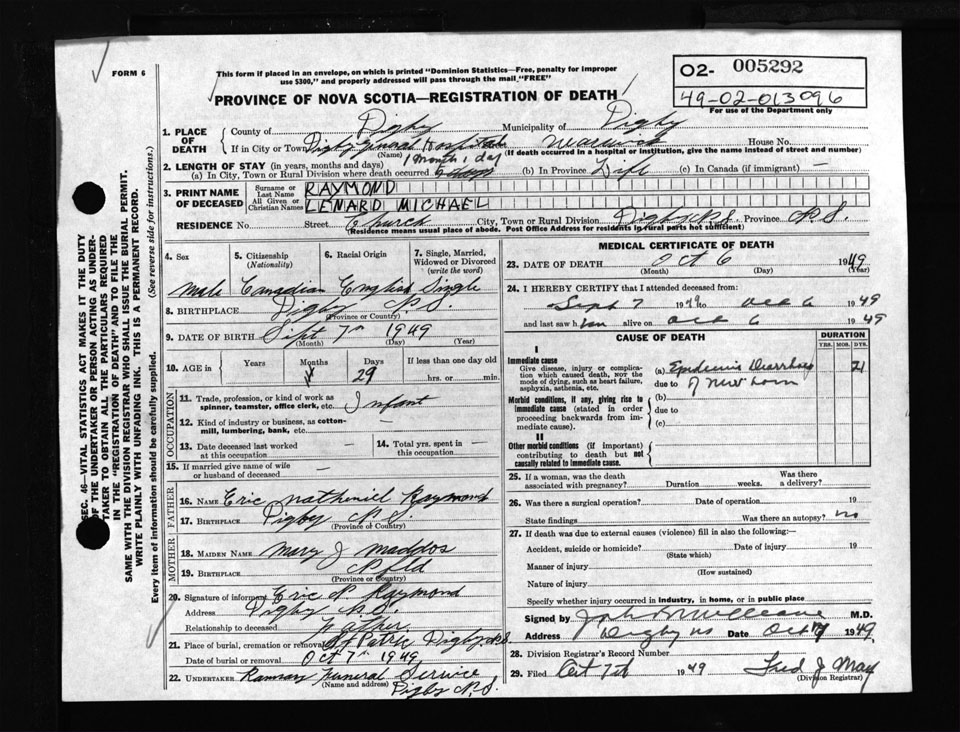 FORM 6
This form if placed in an envelope, on which is printed "Dominion Statistics—Free, penalty for improper
use $300," and properly addressed will pass through the mail "FREE"
PROVINCE OF NOVA SCOTIA—REGISTRATION OF DEATH
02- 005292
49-02-013096
For use of the Department only
1. PLACE OF DEATH
County of Digby Municipality of Digby
If in City or Town Digby General Hospital House No.
(Name) (If death occurred in a hospital or institution, give the name instead of street and number)
2. LENGTH OF STAY (in years, months and days) 1 month 1 day
(a) In City, Town or Rural Division where death occurred (b) In Province Life (c) In Canada (if immigrant) —
3. PRINT NAME OF DECEASED
Surname or Last Name RAYMOND
All Given or Christian Names LENARD MICHAEL
RESIDENCE No. Street Church City, Town or Rural Division Digby N.S. Province N.S.
(Residence means usual place of abode. Post Office Address for residents in rural parts not sufficient)
4. Sex 5. Citizenship (Nationality) 6. Racial Origin 7. Single, Married, Widowed or Divorced (write the word)
Male Canadian English Single
8. BIRTHPLACE Digby N.S.
(Province or Country)
9. DATE OF BIRTH Sept 7th 1949
(Month) (Day) (Year)
10. AGE in Years Months Days If less than one day old
29 hrs. or min.
OCCUPATION
11. Trade, profession, or kind of work as spinner, teamster, office clerk, etc. Infant
12. Kind of industry or business, as cotton-mill, lumbering, bank, etc. —
13. Date deceased last worked at this occupation — 14. Total yrs. spent in this occupation —
15. If married give name of wife or husband of deceased —
FATHER
16. NAME Eric Nathaniel Raymond
17. BIRTHPLACE Digby N.S.
(Province of Country)
MOTHER
18. MAIDEN NAME Mary J Maddos
19. BIRTHPLACE Nfld
(Province or Country)
20. Signature of informant Eric N Raymond
Address Digby N.S.
Relationship to deceased Father
21. Place of burial, cremation or removal St Patric Digby N.S.
Date of burial or removal Oct 7th 1949
22. UNDERTAKER Ramsay Funeral Service
(Name and address) Digby N.S.
MEDICAL CERTIFICATE OF DEATH
23. DATE OF DEATH Oct 6 1949
(Month) (Day) (Year)
24. I HEREBY CERTIFY that I attended deceased from:
Sept 7 1949 to Oct 6 1949
and last saw him alive on Oct 6 1949
CAUSE OF DEATH DURATION
YRS. MOS. DYS.
I
Immediate cause
Give disease, injury or complication which caused death, not the mode of dying, such as heart failure, asphyxia, asthenia, etc.
(a) Epidemic Diarrhoea 21
due to of new born
Morbid conditions, if any, giving rise to immediate cause (stated in order proceeding backwards from immediate cause).
(b)
due to
(c)
II
Other morbid conditions (if important) contributing to death but not causally related to immediate cause.
25. If a woman, was the death associated with pregnancy? Duration weeks. Was there a delivery?
26. Was there a surgical operation? Date of operation 19
State findings Was there an autopsy? no
27. If death was due to external causes (violence) fill in also the following:—
Accident, suicide or homicide? Date of injury 19
(State which)
Manner of injury
(How sustained)
Nature of injury
Specify whether injury occurred in industry, in home, or in public place
Signed by M.D.
Address Digby NS Date Oct 1949
28. Division Registrar's Record Number
29. Filed Oct 7th 1949 Fred J May
(Division Registrar)
SEC. 46—VITAL STATISTICS ACT MAKES IT THE DUTY
OF THE UNDERTAKER OR PERSON ACTING AS UNDER-
TAKER TO OBTAIN ALL THE PARTICULARS REQUIRED
IN THE "REGISTRATION OF DEATH" AND TO FILE THE
SAME WITH THE DIVISION REGISTRAR WHO SHALL ISSUE THE BURIAL PERMIT.
WRITE PLAINLY WITH UNFADING INK. THIS IS A PERMANENT RECORD.
Every item of information should be carefully supplied. (See reverse side for instructions.)